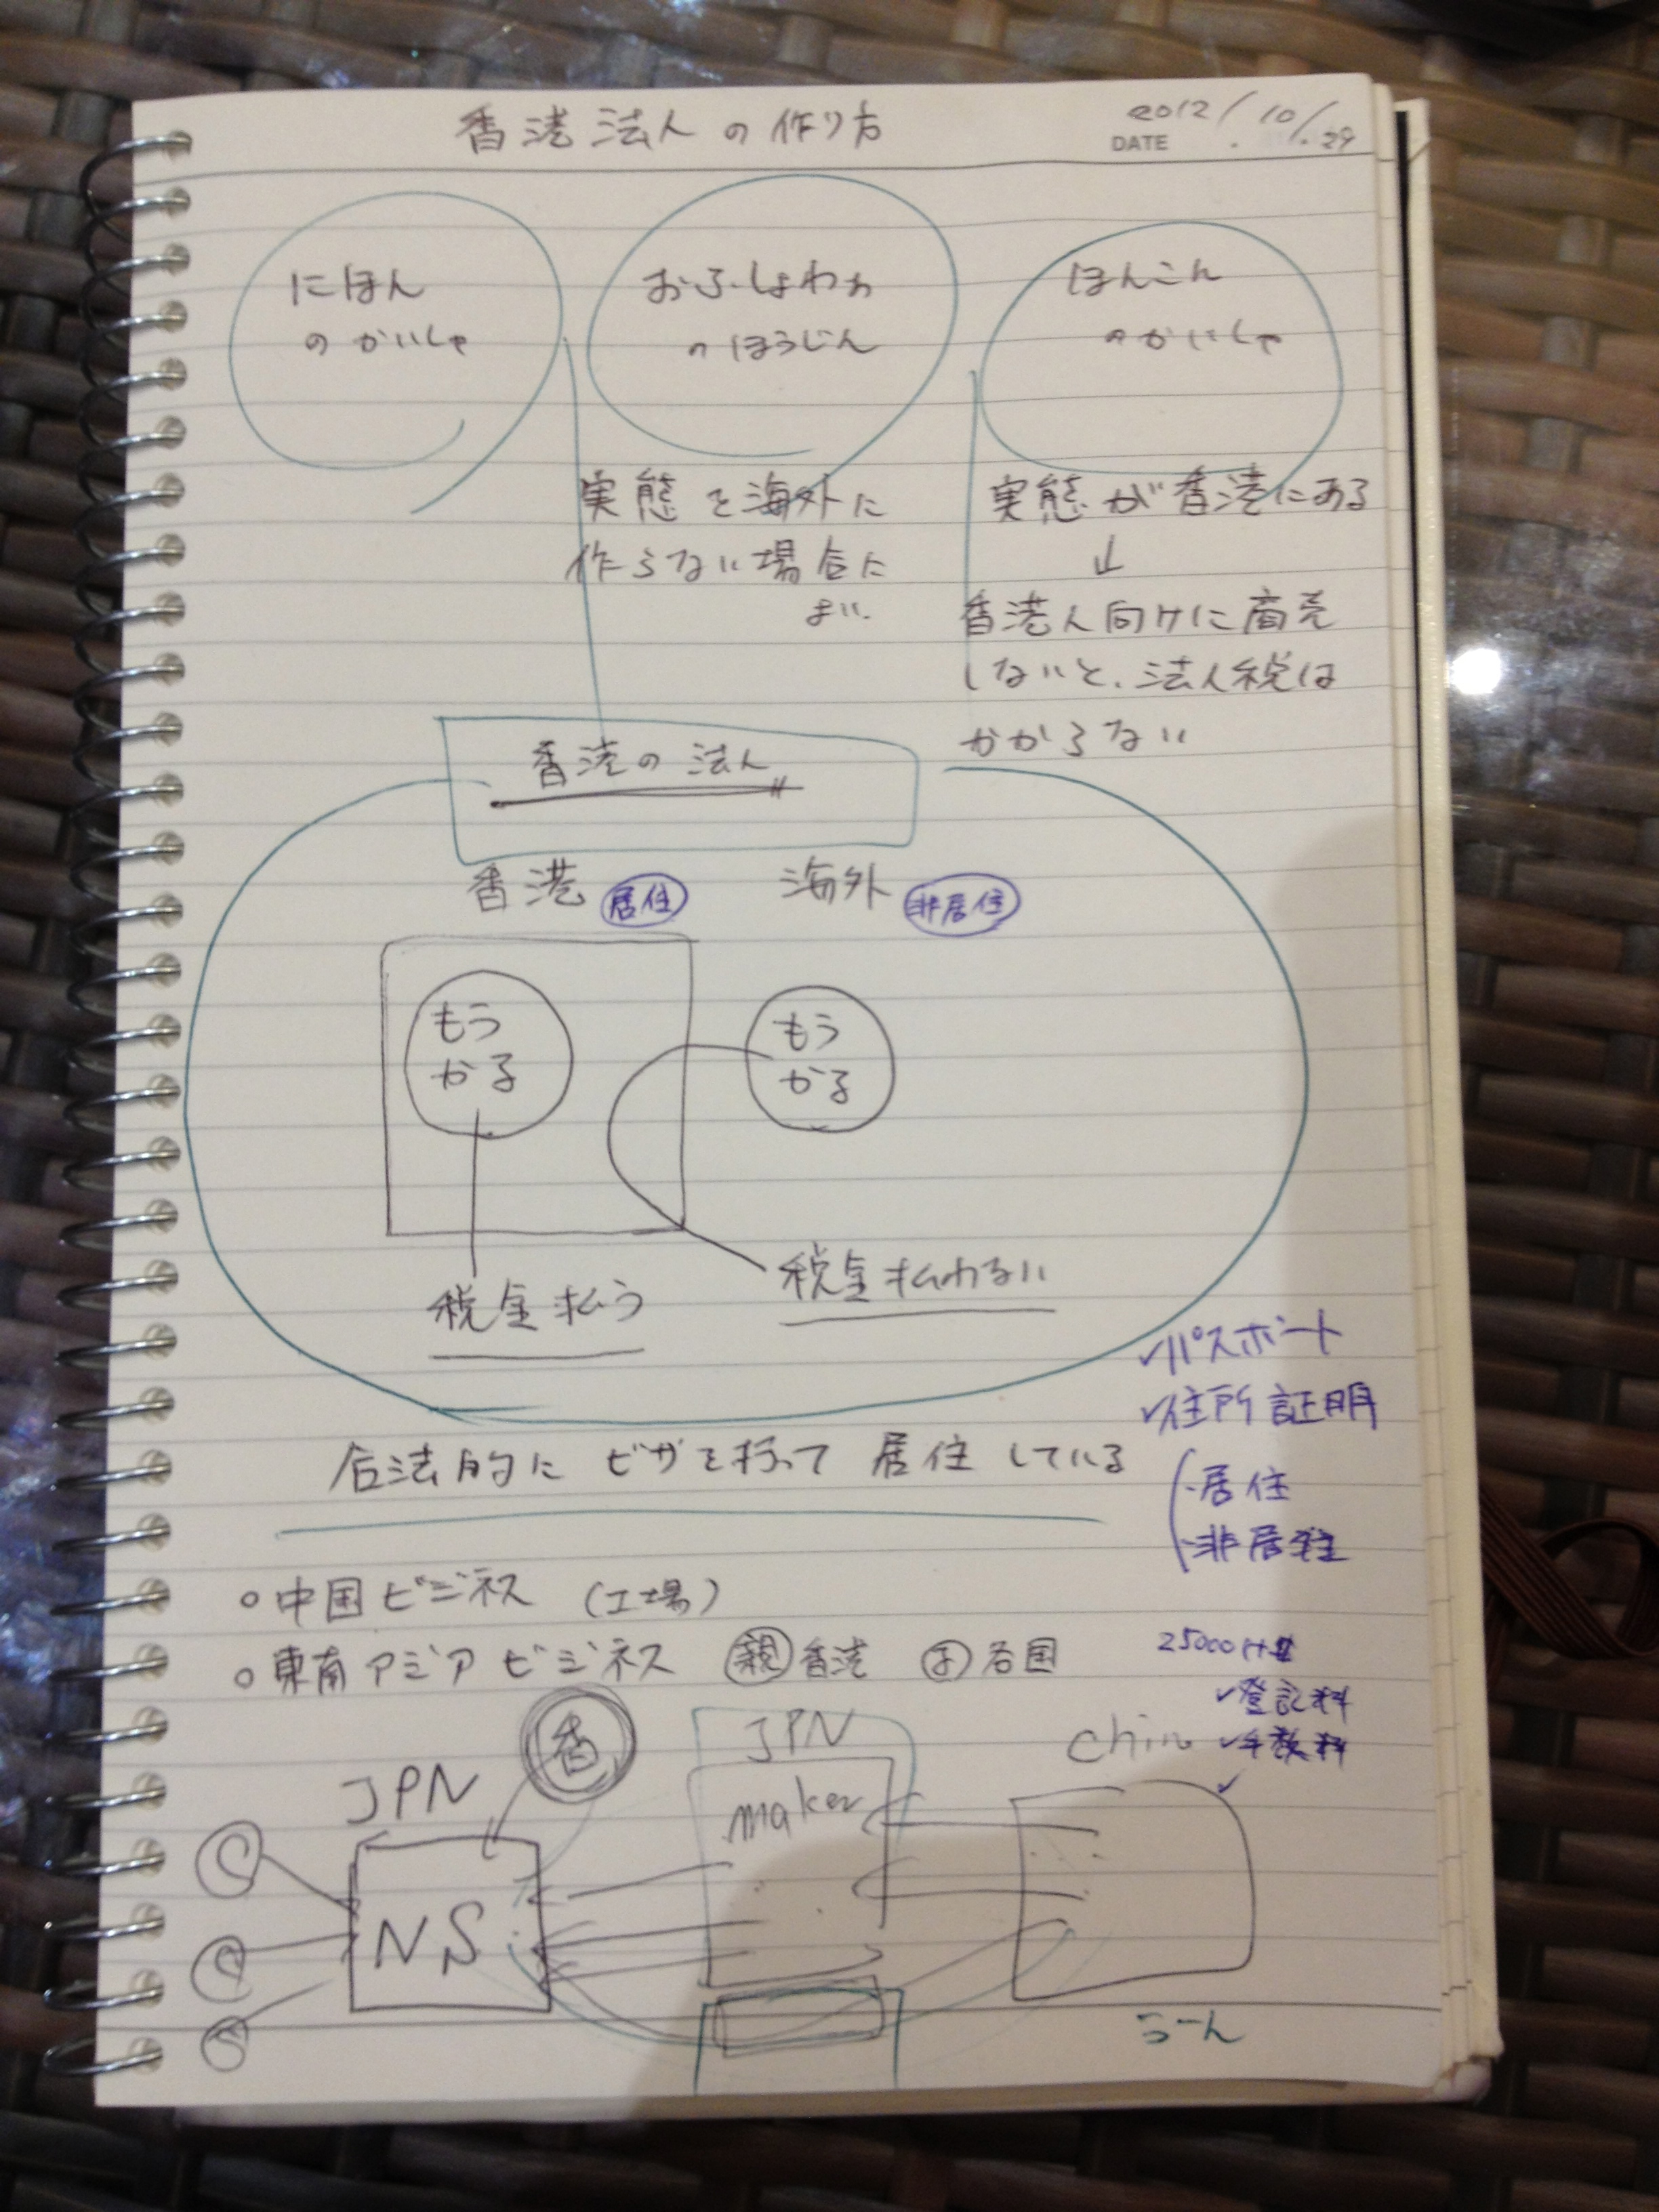 香港法人の作り方
2012/10/29
DATE
にほん
のかいしゃ
おふしょわぁ
のほうじん
ほんこん
のかいしゃ
実態を海外に
作らない場合に
よい.
実態が香港にある
↓
香港人向けに商売
しないと、法人税は
かからない
香港の法人
香港 居住
海外 非居住
もう
かる
もう
かる
税金払う
税金払わない
✓パスポート
✓住所証明
・居住
・非居住
合法的にビザを持って居住している
○中国ビジネス (工場)
○東南アジアビジネス 親香港 子各国
25000
✓登記料
✓手数料
香
JPN
NS
JPN
maker
China
うーん